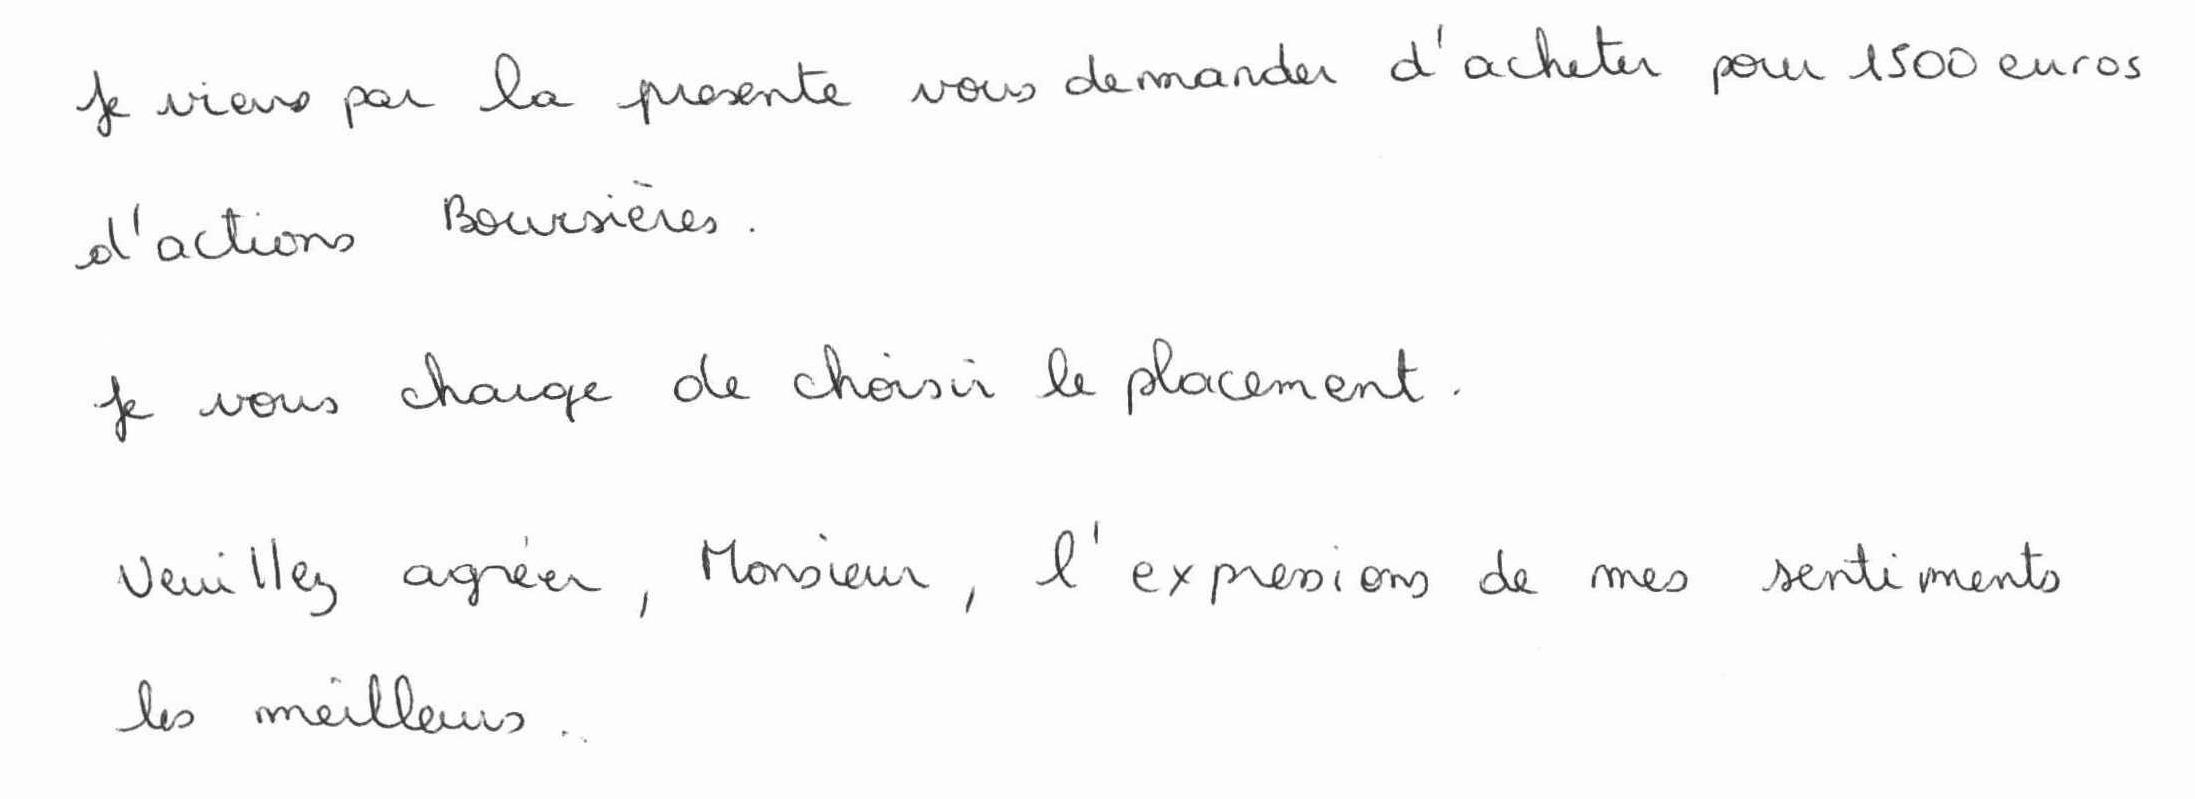 Je viens par la presente vous demander d'acheter pour 1500 euros
d'actions Boursières.
Je vous charge de choisir le placement.
Veuillez agréer, Monsieur, l'expressions de mes sentiments
les meilleurs.